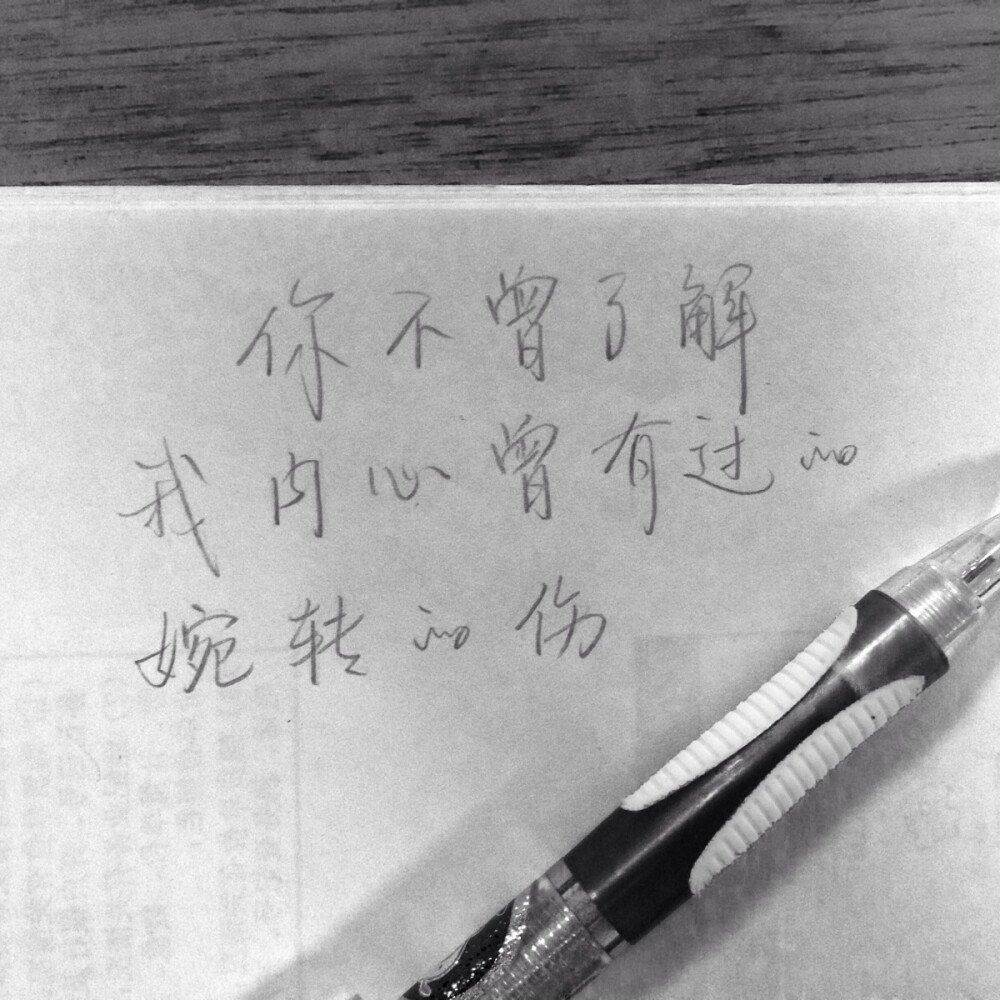 你不曾了解
我内心曾有过的
婉转的伤